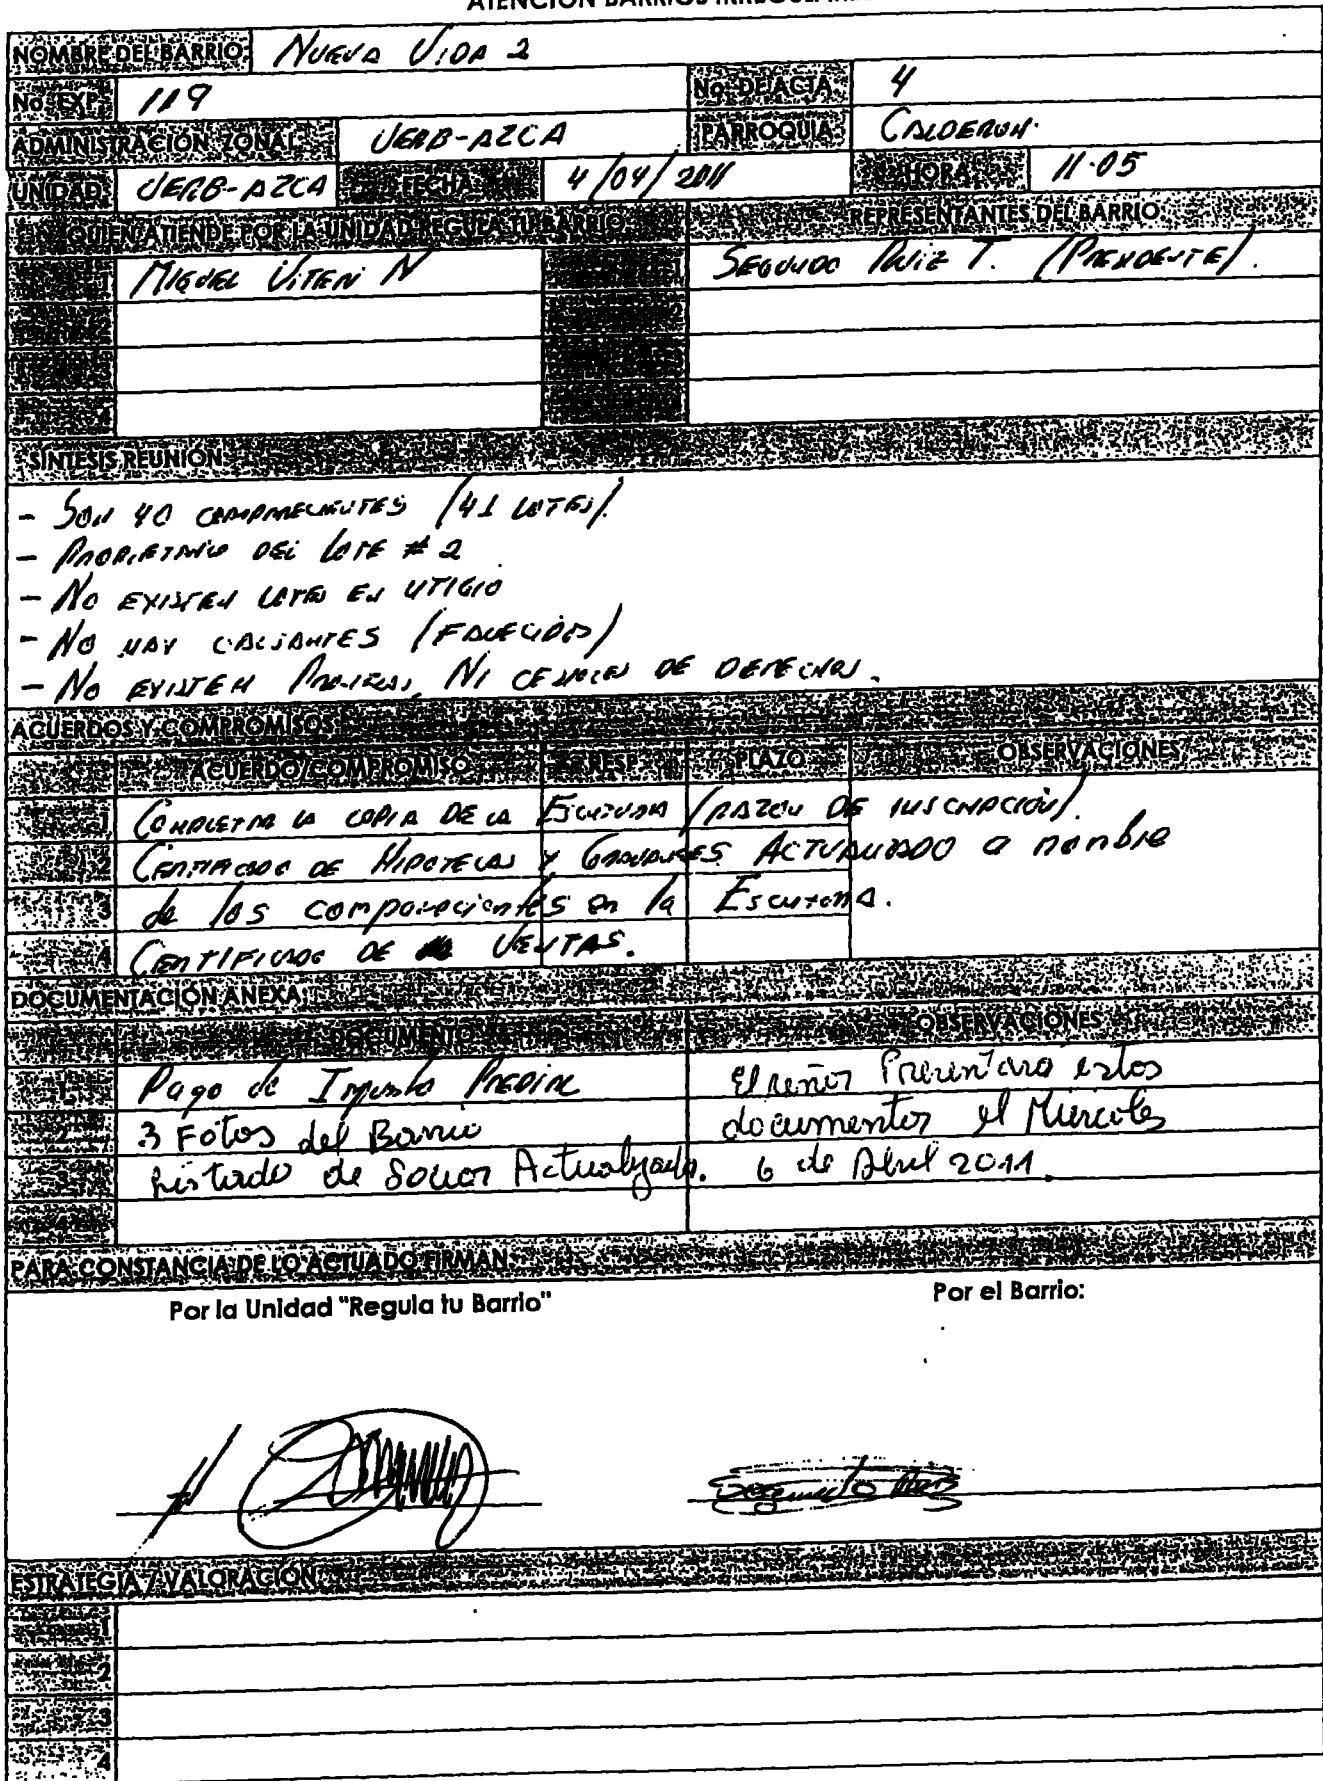 ATENCIÓN BARRIOS
NOMBRE DEL BARRIO: NUEVA VIDA 2
No. EXP. 119 No. DE ACTA 4
ADMINISTRACIÓN ZONAL UERB-AZCA PARROQUIA CALDERON.
UNIDAD: UERB-AZCA FECHA 4/04/2011 HORA 11:05
QUIEN ATIENDE POR LA UNIDAD REGULA TU BARRIO REPRESENTANTES DEL BARRIO
MIGUEL VITERI N SEGUNDO RUIZ T. (PRESIDENTE).
SÍNTESIS REUNIÓN
- SON 40 COMPARECIENTES (41 LOTES).
- PROPIETARIO DEL LOTE # 2
- NO EXISTEN LOTES EN LITIGIO
- NO HAY CAUSANTES (FALLECIDOS)
- NO EXISTEN NI CESIONES DE DERECHOS.
ACUERDOS Y COMPROMISOS
ACUERDO/COMPROMISO RESP. PLAZO OBSERVACIONES
1 COMPLETAR LA COPIA DE LA ESCRITURA (RAZON DE INSCRIPCIÓN).
2 CERTIFICADO DE HIPOTECAS Y GRAVAMENES ACTUALIZADO a nombre
3 de los comparecientes en la Escritura.
4 CERTIFICADO DE VENTAS.
DOCUMENTACIÓN ANEXA
DOCUMENTO OBSERVACIONES
1 Pago de Impuesto PREDIAL El señor Presentara estos
2 3 Fotos del Barrio documentos el Miercoles
Listado de Socios Actualizado. 6 de Abril 2011.
PARA CONSTANCIA DE LO ACTUADO FIRMAN
Por la Unidad "Regula tu Barrio" Por el Barrio:
Segundo Ruiz
ESTRATEGIA / VALORACIÓN
1
2
3
4